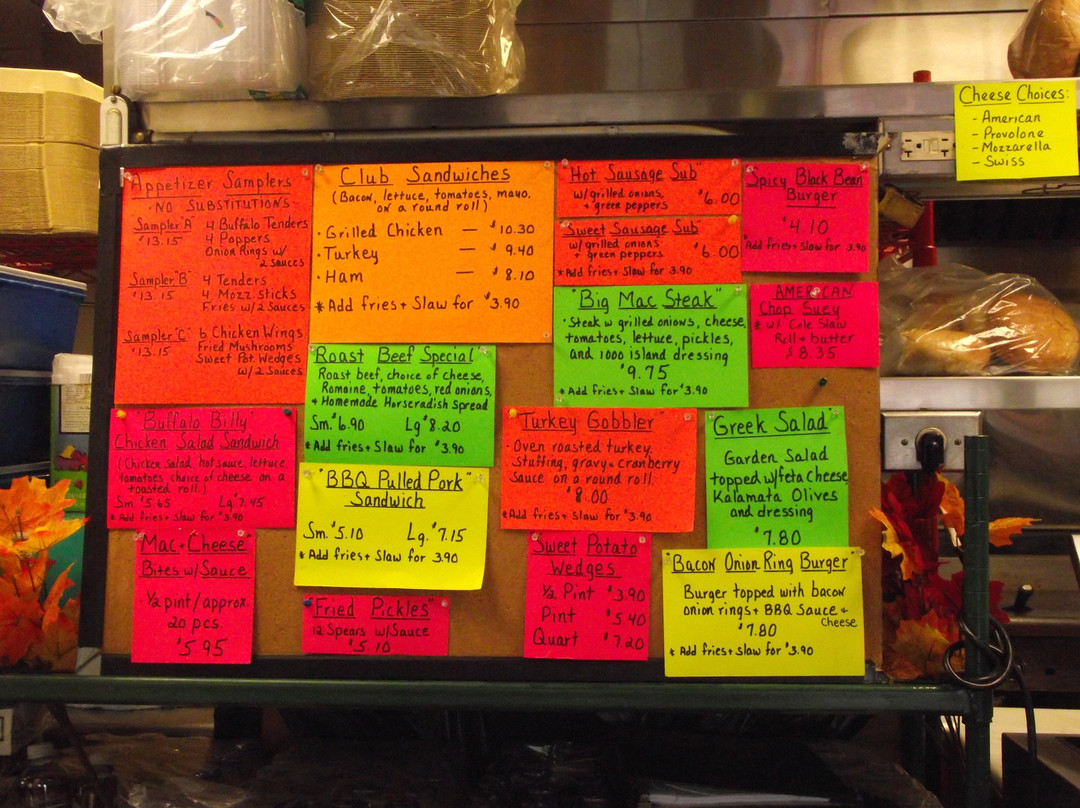 Appetizer Samplers
·NO SUBSTITUTIONS·
Sampler "A" 4 Buffalo Tenders
$13.15 4 Poppers
Onion Rings w/
2 Sauces
Sampler "B" 4 Tenders
$13.15 4 Mozz sticks
Fries w/2 Sauces
Sampler "C" 6 Chicken Wings
$13.15 Fried Mushrooms
Sweet Pot. Wedges
w/2 Sauces
Club Sandwiches
(Bacon, lettuce, tomatoes, mayo,
on a round roll)
· Grilled Chicken — $10.30
· Turkey — $9.40
· Ham — $8.10
* Add fries + Slaw for $3.90
"Hot Sausage Sub"
w/grilled onions,
+ green peppers $6.00
"Sweet Sausage Sub"
w/ grilled onions
+ green peppers 6.00
* Add fries + Slaw for 3.90
Spicy Black Bean
Burger
$4.10
*Add fries + slaw for 3.90
Cheese Choices:
- American
- Provolone
- Mozzarella
- Swiss
"Roast Beef Special"
Roast beef, choice of cheese,
Romaine, tomatoes, red onions,
+ Homemade Horseradish Spread
Sm. $6.90 Lg $8.20
* Add fries + Slaw for $3.90
"Big Mac Steak"
· Steak w grilled onions, cheese,
tomatoes, lettuce, pickles,
and 1000 island dressing
$9.75
* Add fries + Slaw for $3.90
AMERICAN
Chop Suey
* w/ Cole Slaw
Roll + butter
$8.35
"Buffalo Billy"
Chicken Salad Sandwich
(Chicken salad, hot sauce, lettuce,
tomatoes, choice of cheese on a
toasted roll.)
Sm $5.65 Lg $7.45
* Add fries + Slaw for $3.90
"BBQ Pulled Pork"
Sandwich
Sm. $5.10 Lg. $7.15
* Add fries + Slaw for 3.90
"Turkey Gobbler"
· Oven roasted turkey,
Stuffing, gravy + cranberry
Sauce on a round roll.
$8.00
* Add fries + Slaw for $3.90
"Greek Salad"
Garden Salad
topped w/feta Cheese
Kalamata Olives
and dressing
$7.80
Mac + Cheese
Bites w/Sauce
· ½ pint/approx.
20 pcs.
$5.95
"Fried Pickles"
12 Spears w/Sauce
$5.10
Sweet Potato
Wedges
½ Pint $3.90
Pint $5.40
Quart $7.20
Bacon Onion Ring Burger
Burger topped with bacon
onion rings + BBQ Sauce +
Cheese
$7.80
* Add fries + Slaw for $3.90